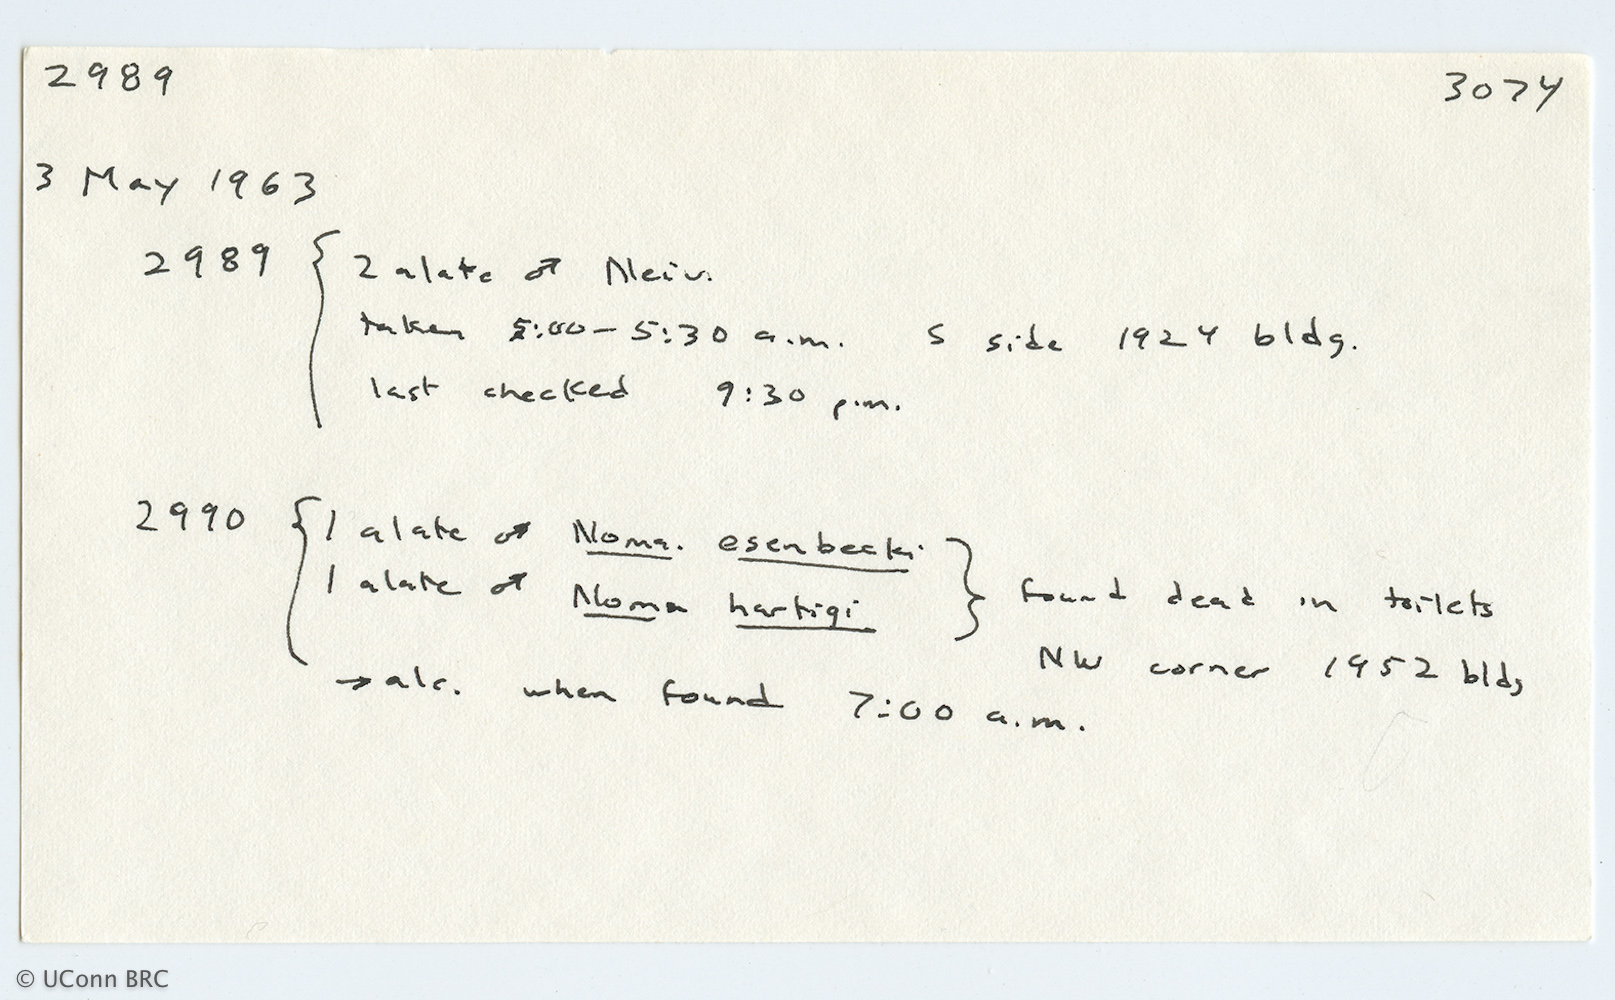 2989 3074
3 May 1963
2989 { 2 alate ♂ Neiv.
taken 5:00 – 5:30 a.m. S side 1924 bldg.
last checked 9:30 p.m.
2990 { 1 alate ♂ Noma. esenbecki
1 alate ♂ Noma hartigi } found dead in toilets
NW corner 1952 bldg
→ alc. when found 7:00 a.m.
© UConn BRC